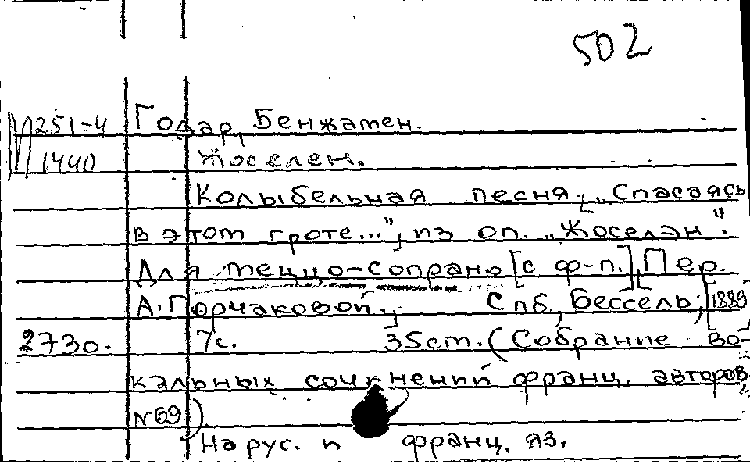 502
М251-4 Годар, Бенжамен.
1440 Жоселен.
Колыбельная песня: „Спасаясь
в этом гроте...", из оп. „Жоселэн".
Для меццо-сопрано [с ф-п.], [Пер.
А. Горчаковой]. Спб, Бессель, [1889]
2730. 7с. 35см. (Собрание во-
кальных сочинений франц. авторов,
№69)
На рус. и франц. яз.